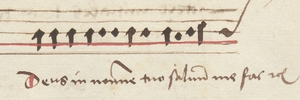 Deus in nomine tuo salvum me fac